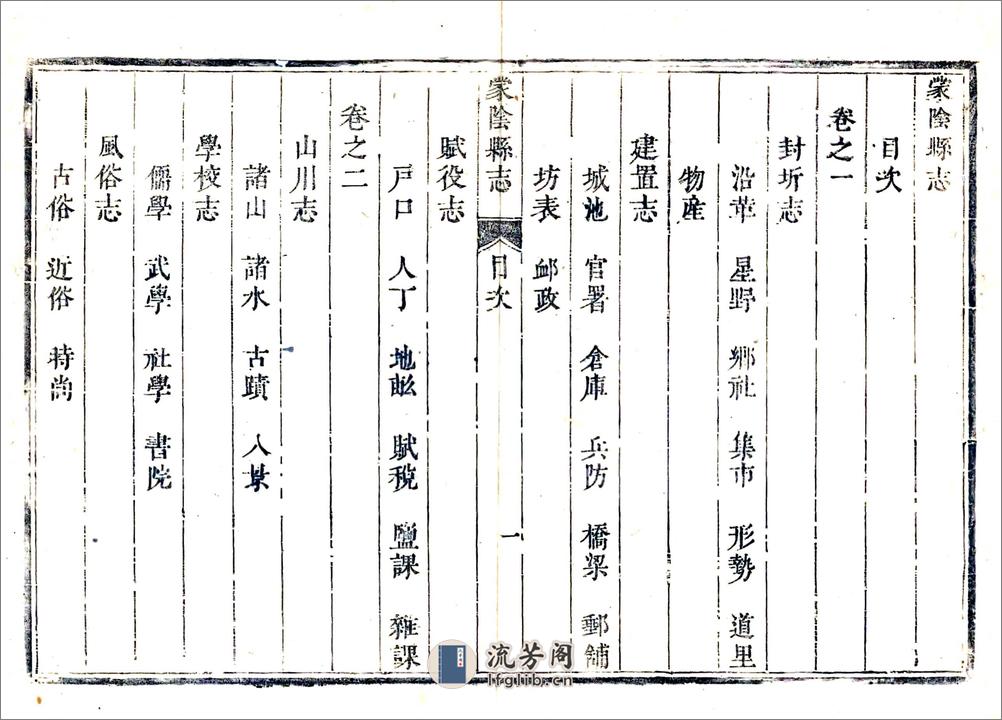 蒙陰縣志
目次
卷之一
封圻志
沿革 星野 鄉社 集市 形勢 道里
物産
建置志
城池 官署 倉庫 兵防 橋梁 郵舖
坊表 䘏政
蒙陰縣志 目次 一
賦役志
戸口 人丁 地畝 賦稅 鹽課 雜課
卷之二
山川志
諸山 諸水 古蹟 八景
學校志
儒學 武學 社學 書院
風俗志
古俗 近俗 時尚
流芳阁
lfglib.cn